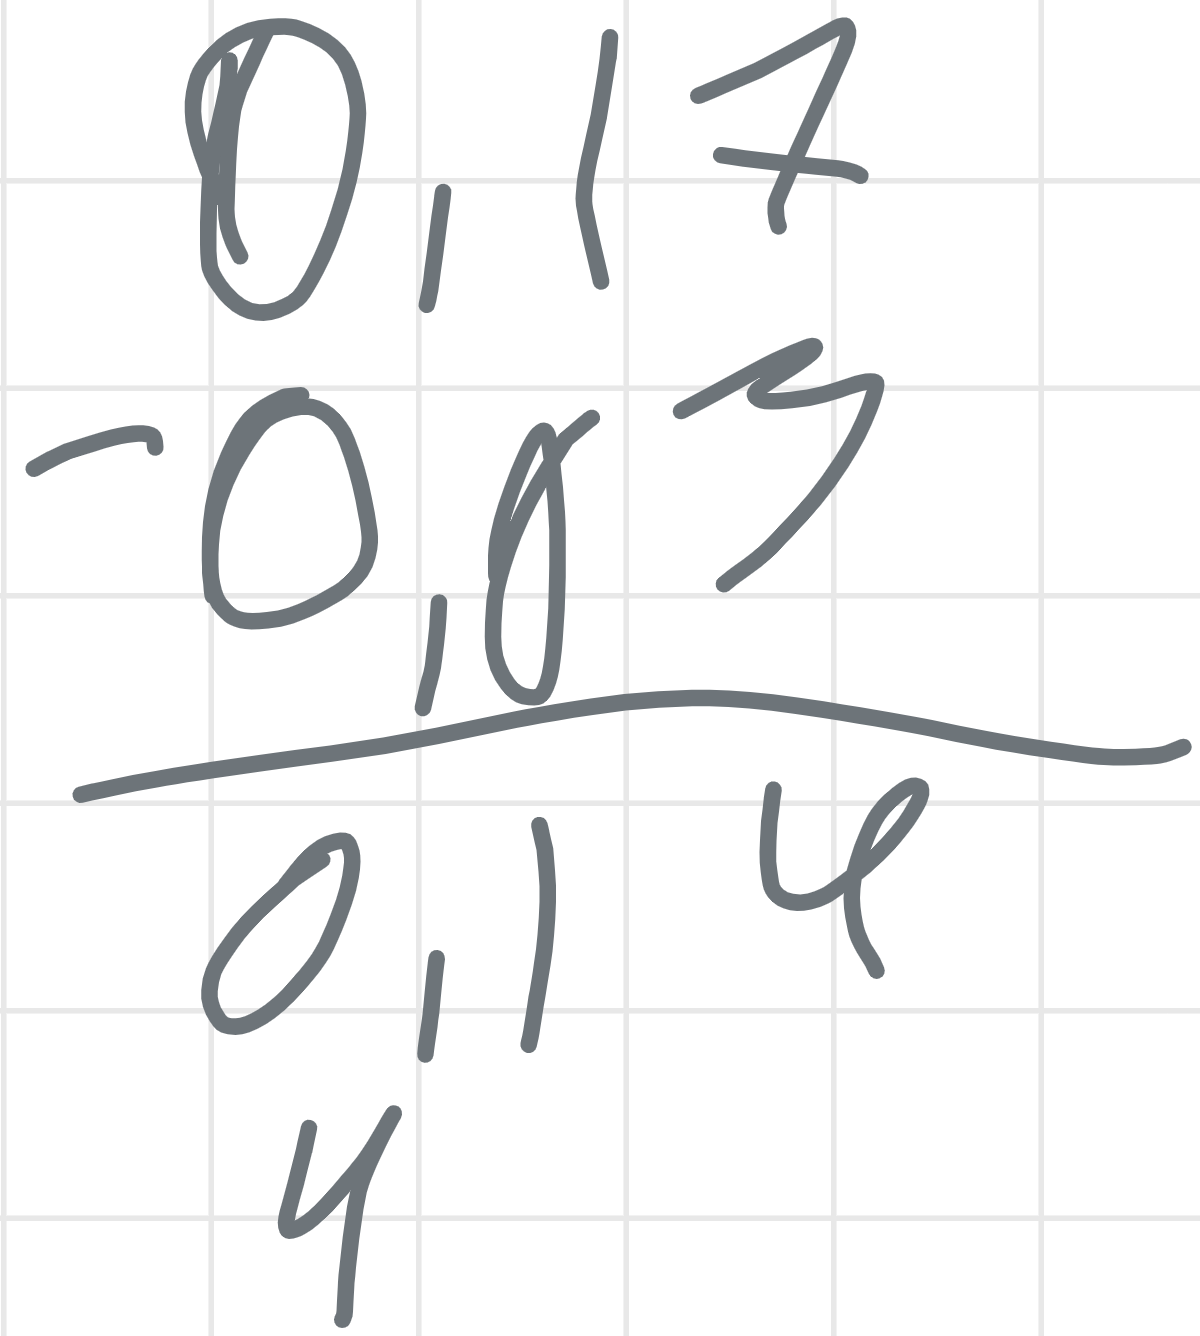 0,17
-0,03
0,14
4